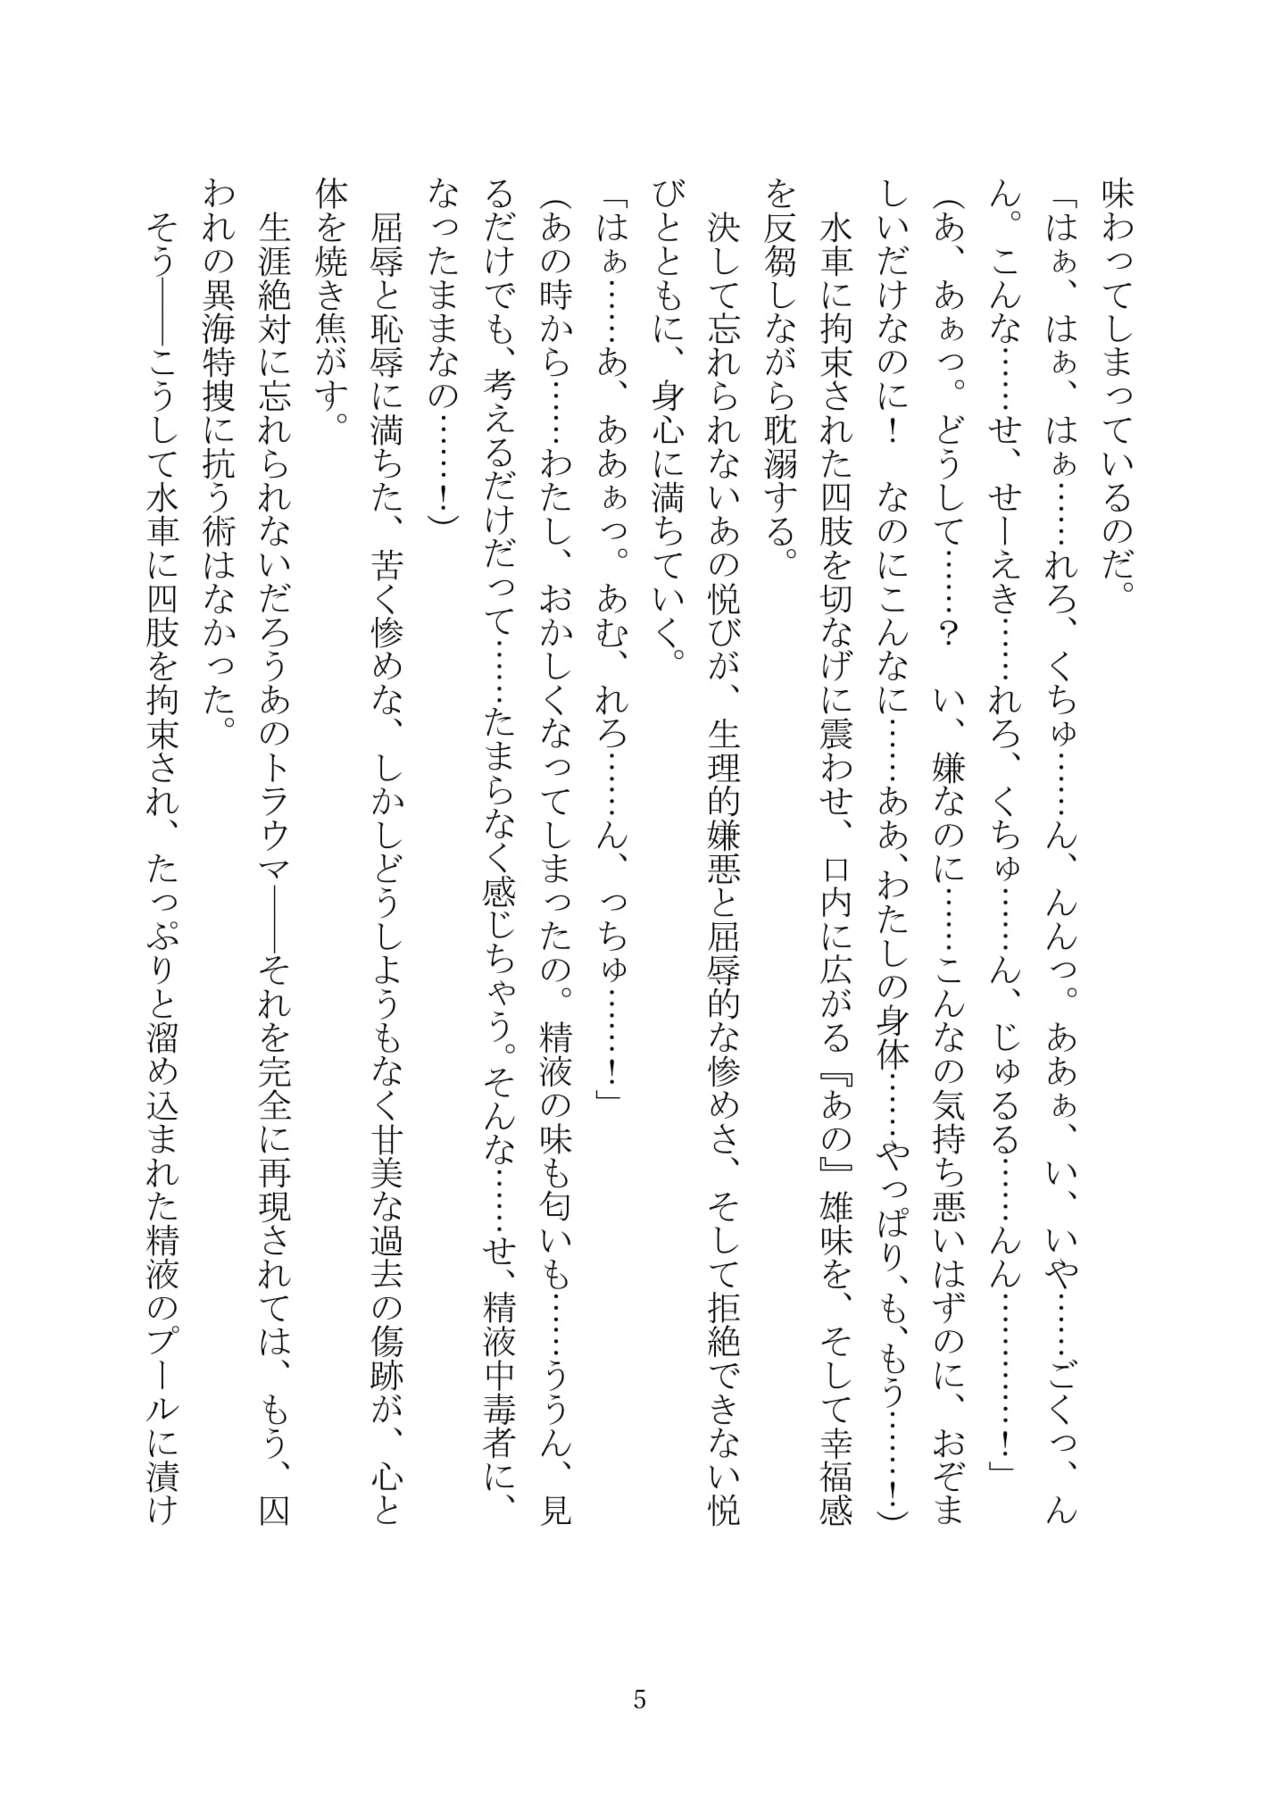 味わってしまっているのだ。
「はぁ、はぁ、はぁ……れろ、くちゅ……ん、んんっ。ああぁ、い、いや……ごくっ、ん
ん。こんな……せ、せーえき……れろ、くちゅ……ん、じゅるる……んん…………！」
（あ、あぁっ。どうして……？　い、嫌なのに……こんなの気持ち悪いはずのに、おぞま
しいだけなのに！　なのにこんなに……ああ、わたしの身体……やっぱり、も、もう……！）
　水車に拘束された四肢を切なげに震わせ、口内に広がる『あの』雄味を、そして幸福感
を反芻しながら耽溺する。
　決して忘れられないあの悦びが、生理的嫌悪と屈辱的な惨めさ、そして拒絶できない悦
びとともに、身心に満ちていく。
「はぁ……あ、ああぁっ。あむ、れろ……ん、っちゅ……！」
（あの時から……わたし、おかしくなってしまったの。精液の味も匂いも……ううん、見
るだけでも、考えるだけだって……たまらなく感じちゃう。そんな……せ、精液中毒者に、
なったままなの……！）
　屈辱と恥辱に満ちた、苦く惨めな、しかしどうしようもなく甘美な過去の傷跡が、心と
体を焼き焦がす。
　生涯絶対に忘れられないだろうあのトラウマ――それを完全に再現されては、もう、囚
われの異海特捜に抗う術はなかった。
　そう――こうして水車に四肢を拘束され、たっぷりと溜め込まれた精液のプールに漬け
5